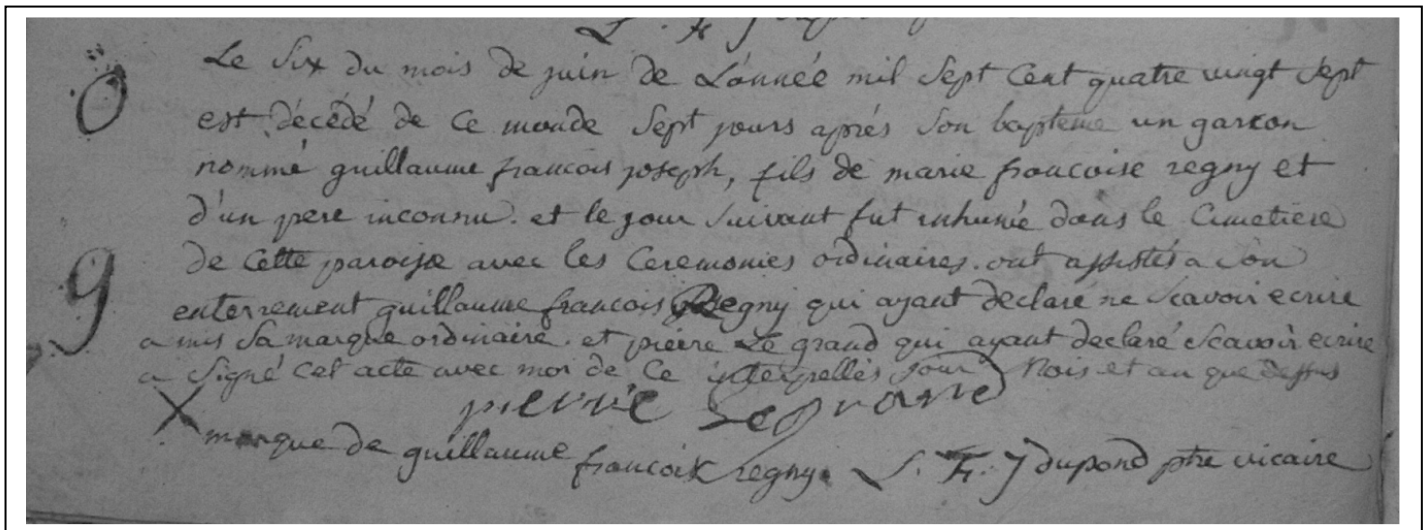 Le Six du mois de juin de L'année mil Sept Cent quatre vingt Sept
est décédé de Ce monde Sept jours aprés Son bapteme un garcon
nommé guillaume francois joseph, fils de marie francoise regny et
d'un pere inconnu. et le jour Suivant fut inhumé dans le Cimetiere
de Cette paroisse avec les Ceremonies ordinaires. ont assistés a Son
enterrement guillaume francois Regny qui ayant declaré ne Scavoir ecrire
a mis Sa marque ordinaire. et pierre Le grand qui ayant declaré Scavoir ecrire
a Signé Cet acte avec moi de Ce interpellés jour mois et an que dessus
pierre Le grand
X marque de guillaume francois regny. S. F. J dupond ptre vicaire